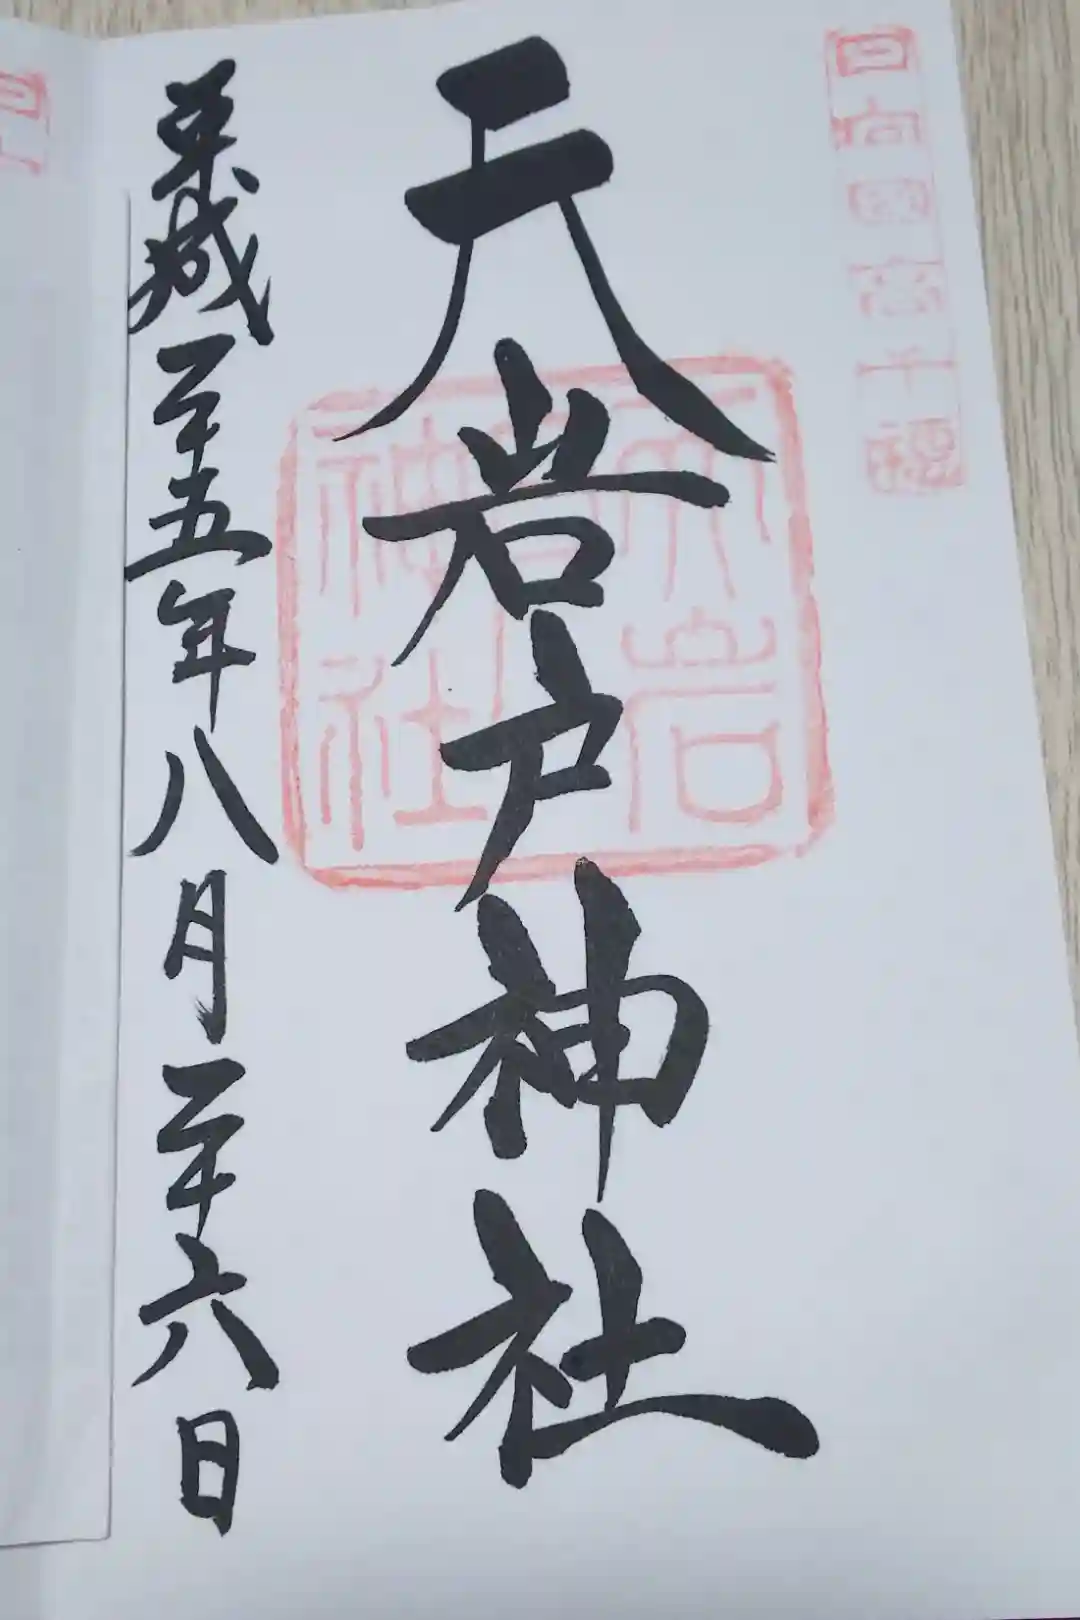 日向國高千穗
天岩戸神社
天岩戸神社
平成二十五年八月二十六日